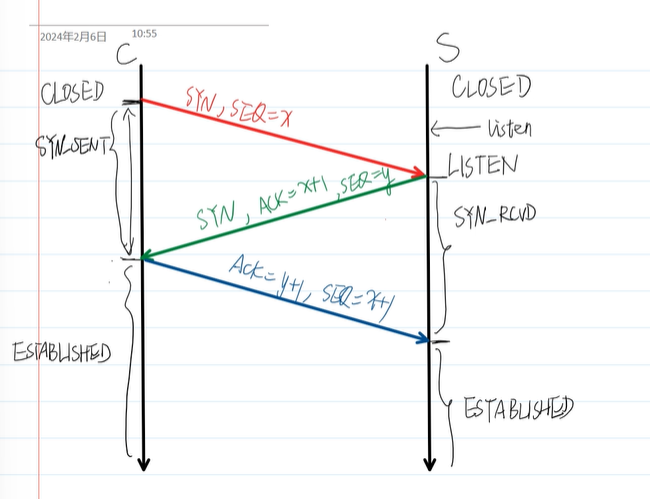 2024年2月6日 10:55
C
S
CLOSED
CLOSED
SYN, SEQ=x
listen
SYN_SENT
LISTEN
SYN, ACK=x+1, SEQ=y
SYN_RCVD
Ack=y+1, SEQ=x+1
ESTABLISHED
ESTABLISHED